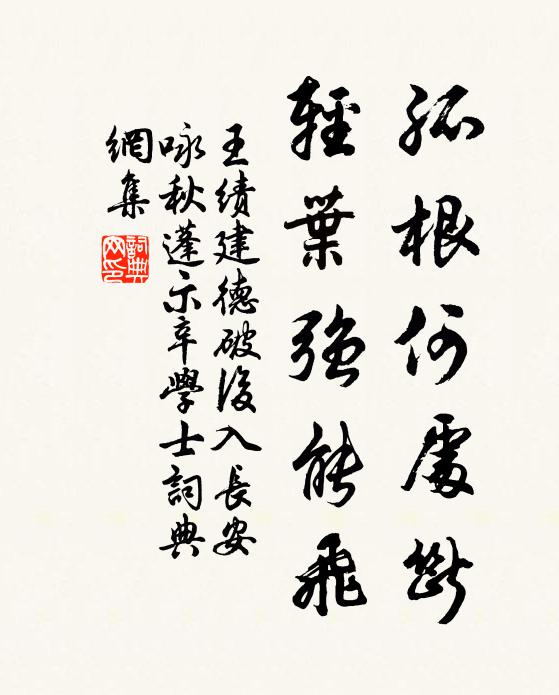 孤根何處斷
輕葉強能飛
王績建德破後入長安
咏秋蓬示辛學士詞典
網集
詞典网印